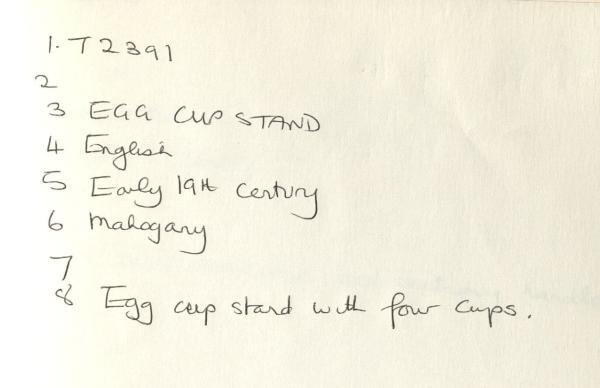 1. T2391
2
3 EGG CUP STAND
4 English
5 Early 19th Century
6 Mahogany
7
8 Egg cup stand with four cups.